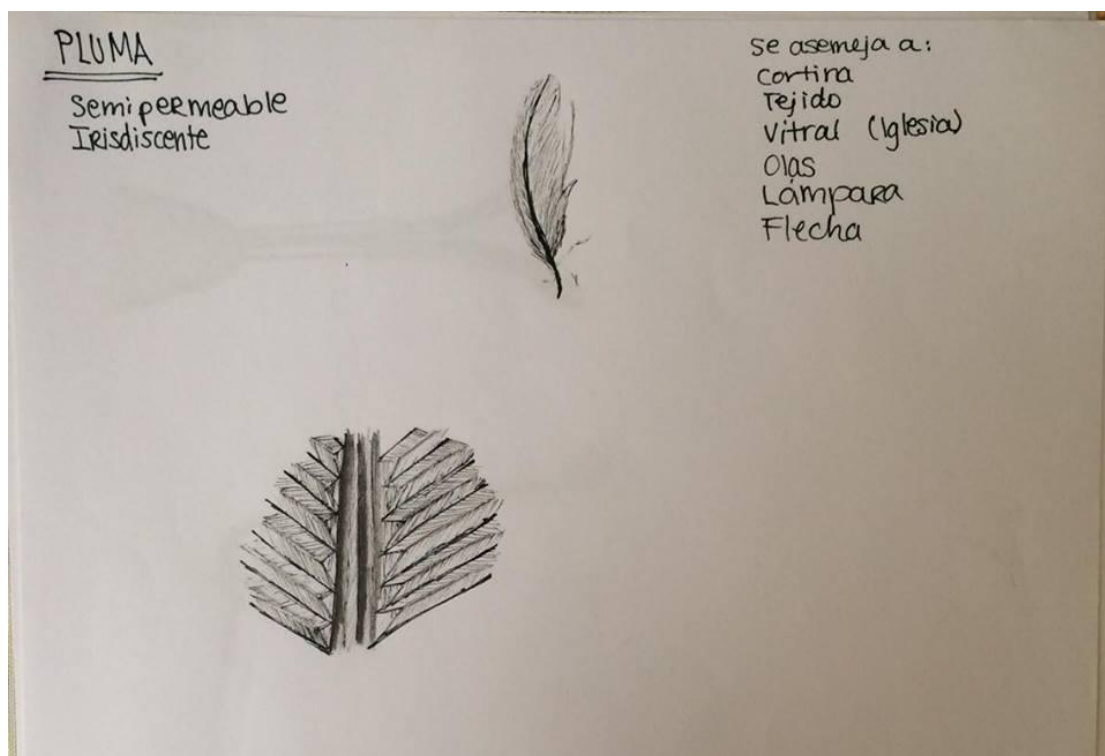 PLUMA
Semipermeable
Irisdiscente
Se asemeja a:
Cortina
Tejido
Vitral (Iglesia)
Olas
Lámpara
Flecha